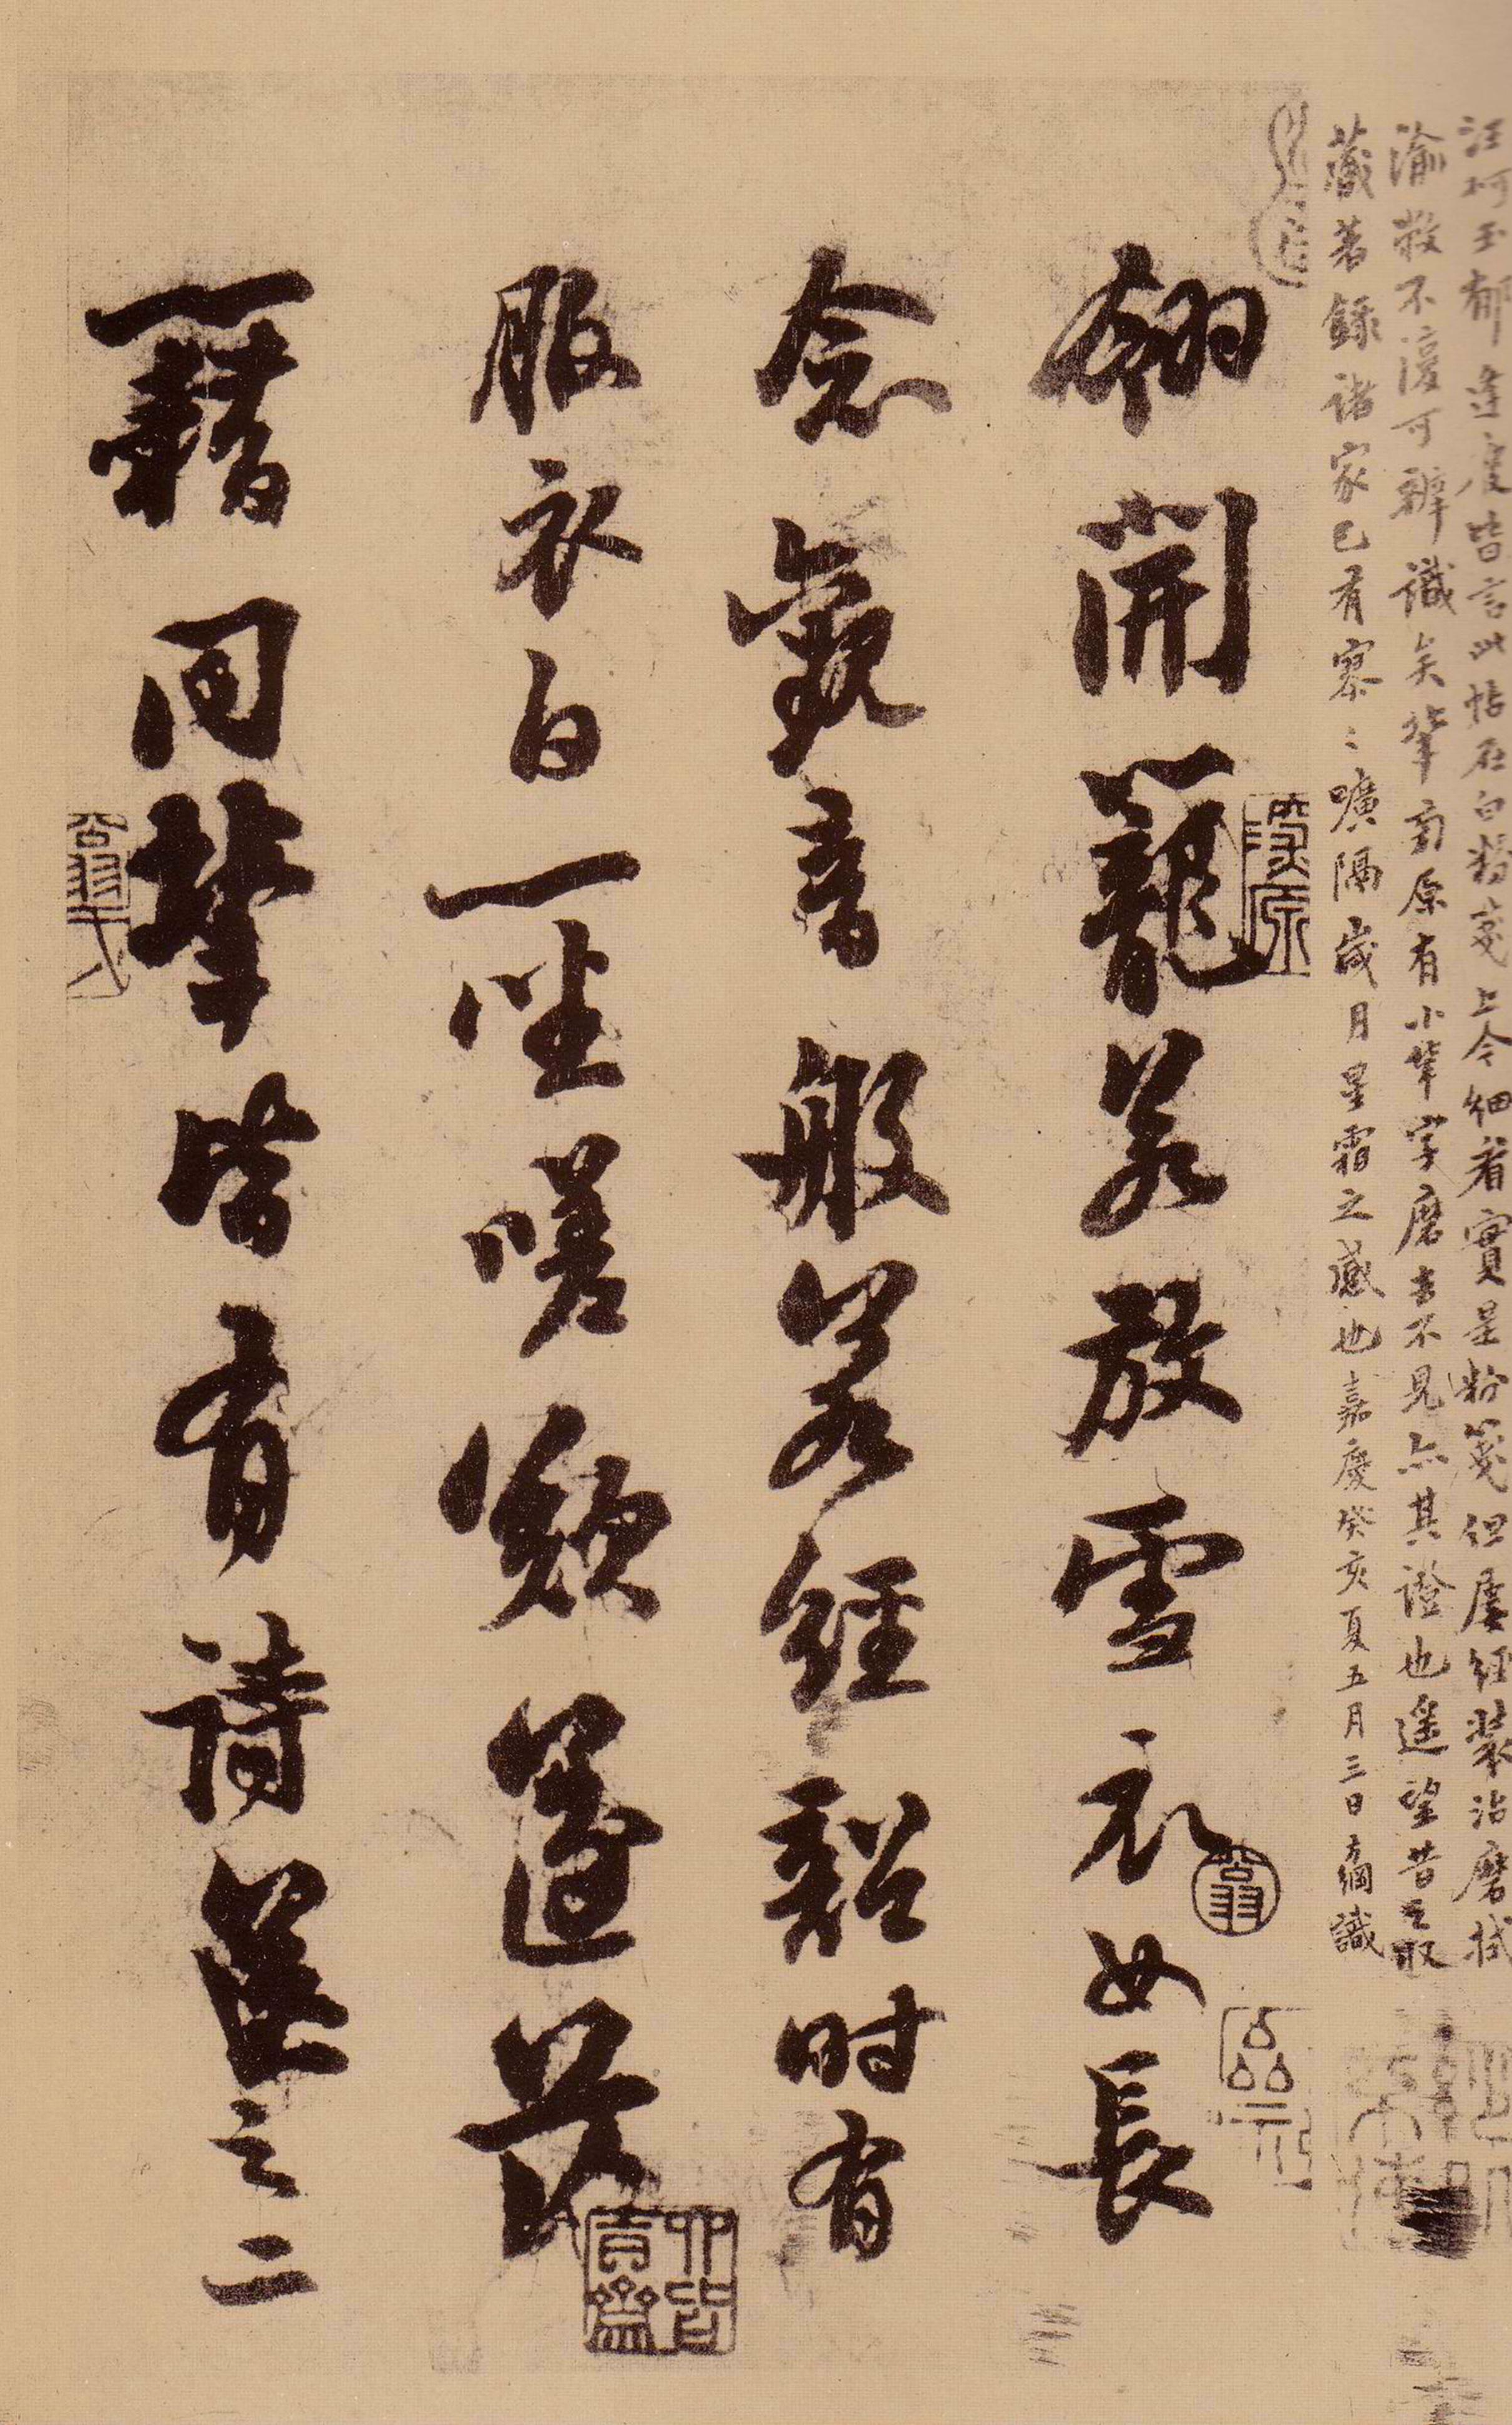 汪珂玉郁逢慶皆言此帖在白粉箋上今細看實是粉箋但屢經裝治磨拭
渝敝不復可辨識矣肇前原有小肇字磨去不見亦其證也遙望昔之收
藏著錄諸家已有寥〻曠隔歲月星霜之感也嘉慶癸亥夏五月三日方綱識
翎開籠若放雪衣女長
念觀音般若經韶時有
服衣白一坐嗟歎遂落
籍同輩皆有詩送之二